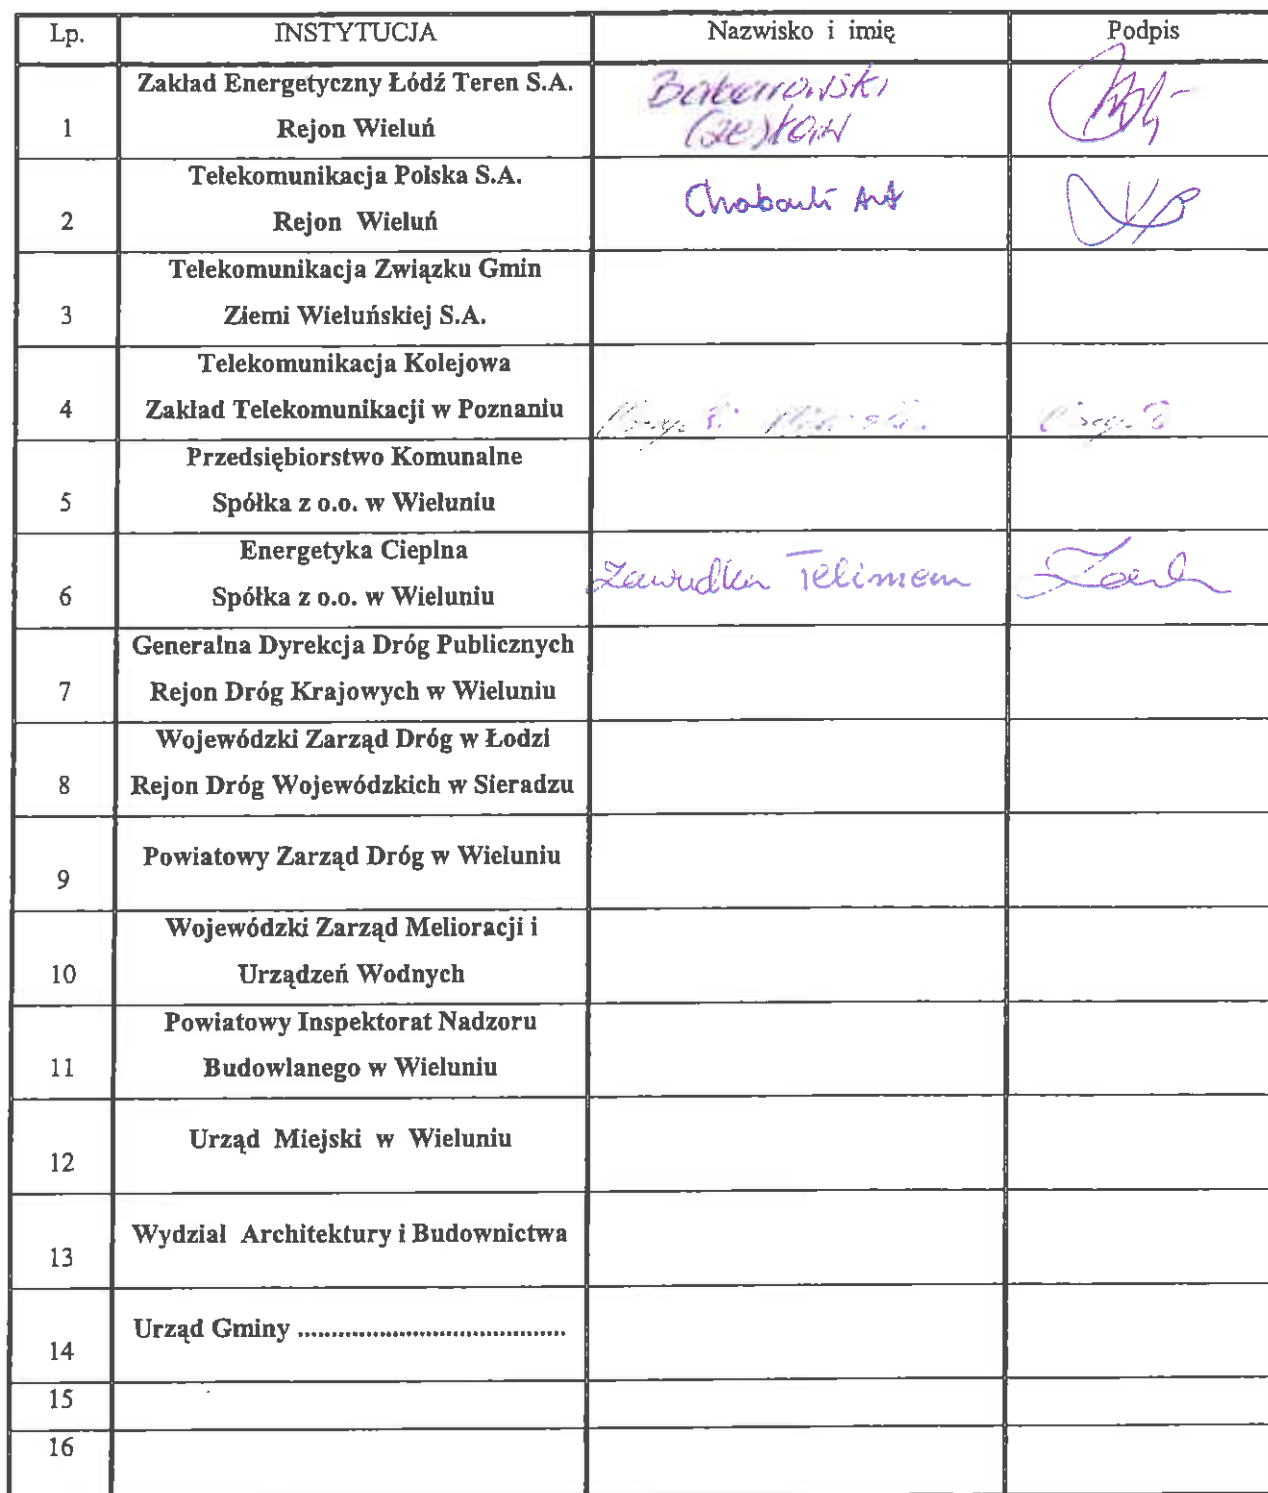 Lp. INSTYTUCJA Nazwisko i imię Podpis
Zakład Energetyczny Łódź Teren S.A.
1 Rejon Wieluń
Telekomunikacja Polska S.A.
2 Rejon Wieluń
Telekomunikacja Związku Gmin
3 Ziemi Wieluńskiej S.A.
Telekomunikacja Kolejowa
4 Zakład Telekomunikacji w Poznaniu
Przedsiębiorstwo Komunalne
5 Spółka z o.o. w Wieluniu
Energetyka Cieplna
6 Spółka z o.o. w Wieluniu
Generalna Dyrekcja Dróg Publicznych
7 Rejon Dróg Krajowych w Wieluniu
Wojewódzki Zarząd Dróg w Łodzi
8 Rejon Dróg Wojewódzkich w Sieradzu
Powiatowy Zarząd Dróg w Wieluniu
9
Wojewódzki Zarząd Melioracji i
10 Urządzeń Wodnych
Powiatowy Inspektorat Nadzoru
11 Budowlanego w Wieluniu
Urząd Miejski w Wieluniu
12
Wydział Architektury i Budownictwa
13
Urząd Gminy ........................................
14
15
16